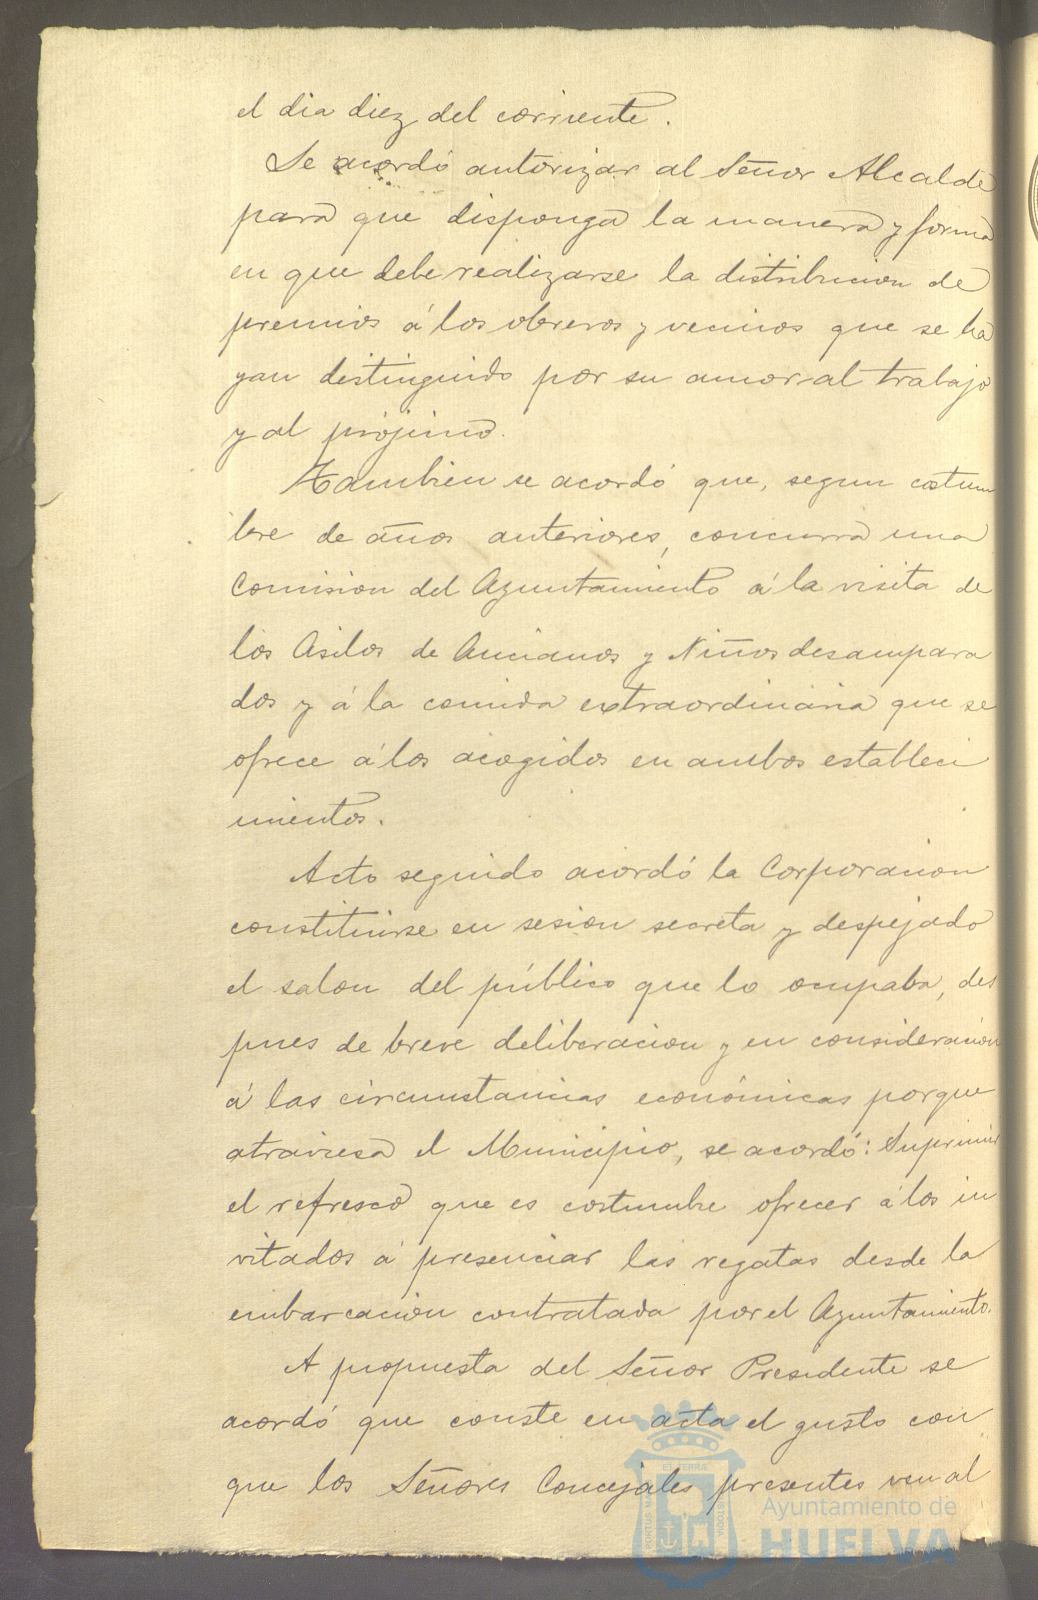 el dia diez del corriente.
Se acordó autorizar al Señor Alcalde
para que disponga la manera y forma
en que debe realizarse la distribucion de
premios á los obreros y vecinos que se ha
yan distinguido por su amor al trabajo
y al prójimo.
Tambien se acordó que, segun costum
bre de años anteriores, concurra una
Comision del Ayuntamiento á la visita de
los Asilos de Ancianos y Niños desampara
dos y á la comida extraordinaria que se
ofrece á los acogidos en ambos estableci
mientos.
Acto seguido acordó la Corporacion
constituirse en sesion secreta y despejado
el salon del público que lo ocupaba, des
pues de breve deliberacion y en consideracion
á las circunstancias económicas porque
atraviesa el Municipio, se acordó: Suprimir
el refresco que es costumbre ofrecer á los in
vitados á presenciar las regatas desde la
embarcacion contratada por el Ayuntamiento.
A propuesta del Señor Presidente se
acordó que conste en acta el gusto con
que los Señores Concejales presentes ven al
Ayuntamiento de
HUELVA